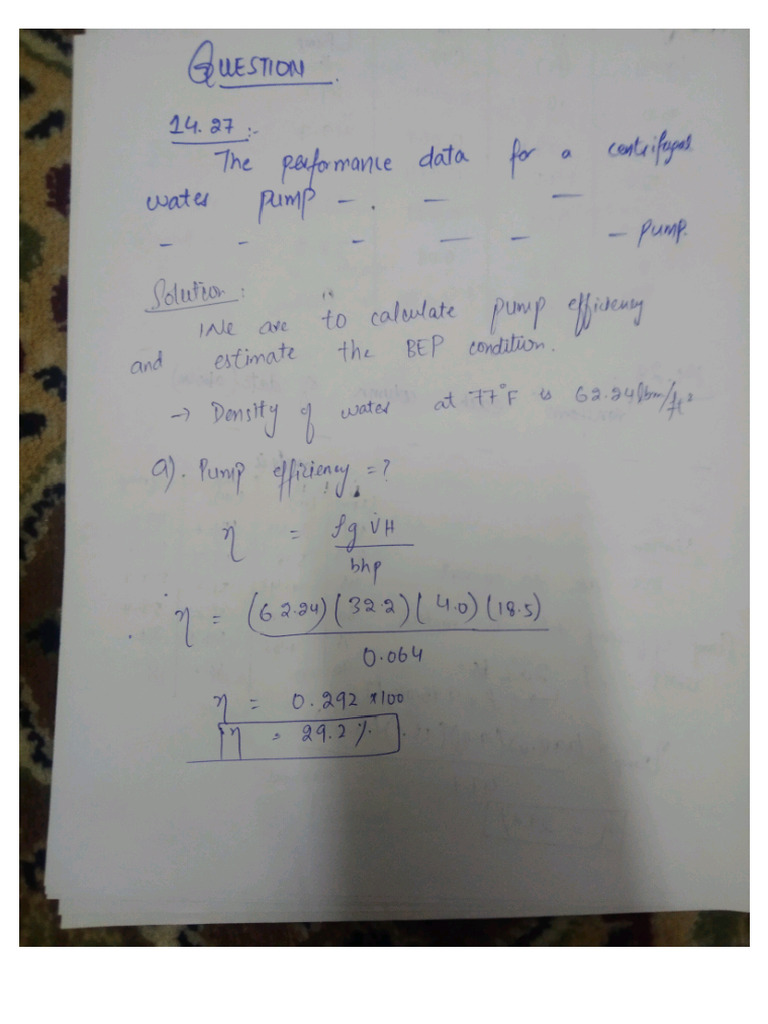 QUESTION.
14.27 :-
The performance data for a centrifugal
water pump - . - -
- - - - - - pump.
Solution :
We are to calculate pump efficiency
and estimate the BEP condition.
→ Density of water at 77°F is 62.24 lbm/ft³
a). Pump efficiency = ?
η = ρg V̇H
bhp
η = (62.24)(32.2)(4.0)(18.5)
0.064
η = 0.292 × 100
η = 29.2 %.